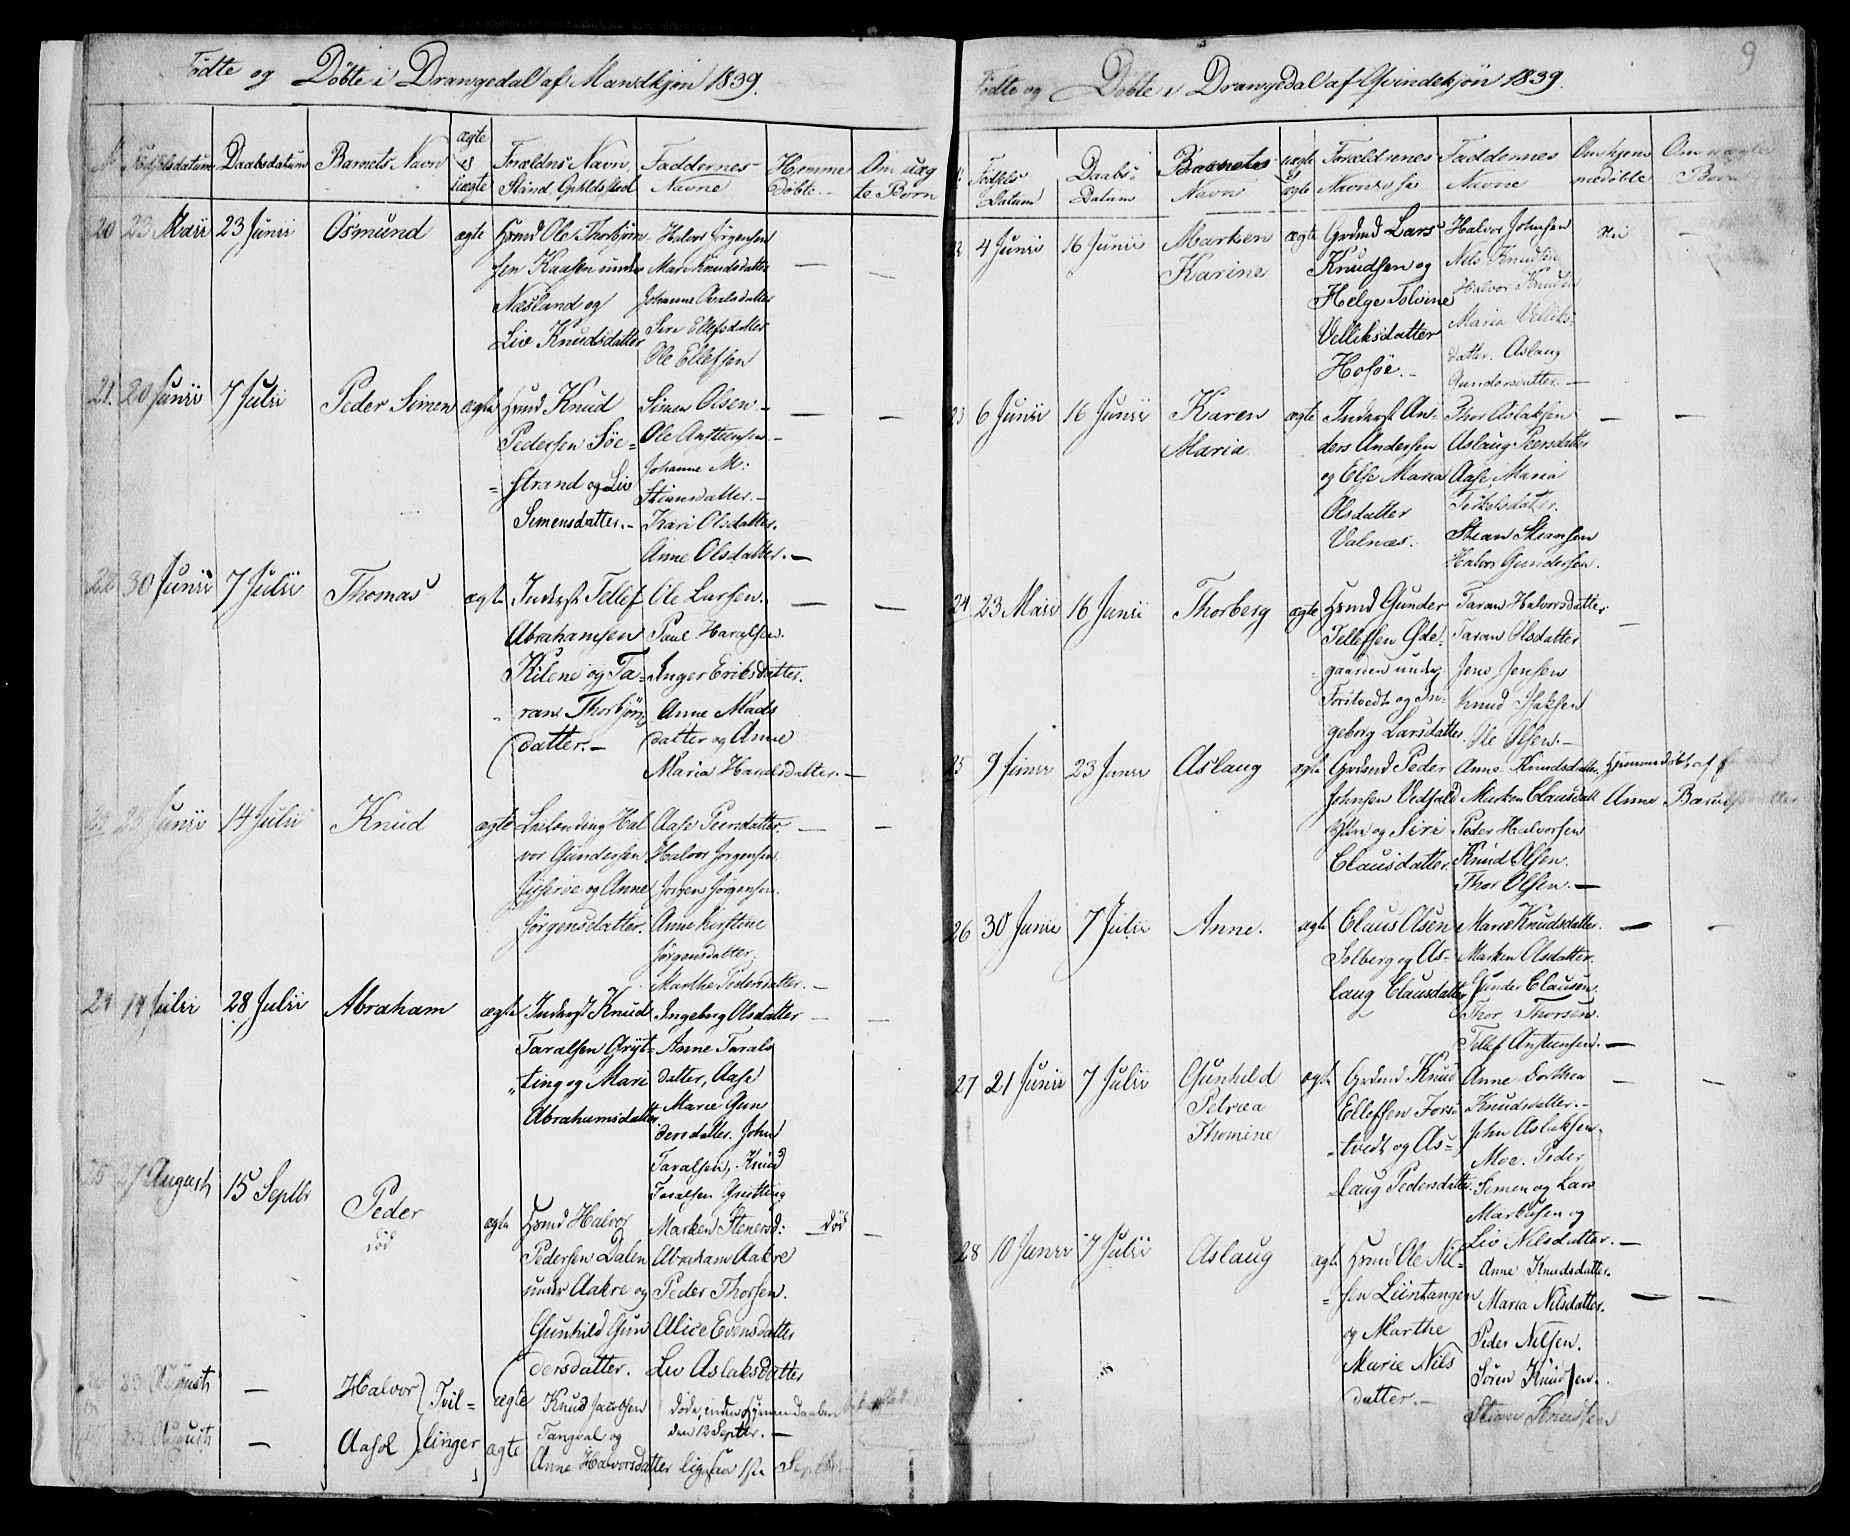 Fødte og Døbte i Drangedal af Mandkjøn 1839.
Fødselsdatum Daabsdatum Barnets Navn ægte el uægte Forældns Navn, Stand, Opholdsted Faddernes Navne Hjemme Døbte Om uæg te Børn
20 23 Maii 23 Junii Osmund ægte Hsmd Ole Thorbjørn
sen Kaasen under
Næsland og
Liv Knudsdatter
Halvor Jørgensen
Mari Knudsdatter
Johanne
Siri Ellefsdatter
Ole Ellefsen
21. 20 Junii 7 Julii Peder Simen ægte Hsmd Knud
Pedersen Söe=
strand og Liv
Simensdatter.-
Simen Olsen.-
Ole Anstensen.-
Johanne M:
Stiansdatter.-
Kari Olsdatter.
Anne Olsdatter.-
22 30 Junii 7 Julii Thomas ægte Inderst Tellef
Abrahamsen
Kilene og Ta=
ran Thorbjörns
datter.-
Ole Larsen.
Paul Haralsen.
Inger Eriksdatter.
Anne Mads
datter og Anne
Maria Haralsdatter.-
23 Junii 14 Julii Knud ægte Leilending Hal
vor Gundersen
og Anne
Jörgensdatter.
Aase Peersdatter
Halvor Jorgensen
Jorgen Jörgensen.
Anne Kirstine
Jørgensdatter.
Marthe Pedersdatter.-
24 14 Julii 28 Julii Abraham ægte Inderst Knud
Taralsen Gryt=
ting og Mari
Abrahamsdatter
Ingeborg Olsdatter
Anne Tarals
datter, Aase
Marie Gun
dersdatter. John
Taralsen, Knud
Taralsen Grytting
25 27 August 15 Septbr Peder
död
ægte Hsmd Halvor
Pedersen Dalen
under Aakre og
Gunhild Gun
dersdatter.
Marken Stenersd:
Abraham Aakre
Peder Thorsen.
Alice Evensdatter
Liv Aslaksdatter
död
23 August - Halvor } Tvil= ægte
August - Aasol } linger ægte
Knud Jacobsen
Tangval og
Anne Halvorsdatter
Døde inden Daaben
den 12 Septbr.-
Fødte og Døbte i Drangedal af Qvindekjön 1839.
9
Fødsels Datum Daabs Datum Barnets Navn ægte el uægte Forældrenes Navne Faddernes Navne Om hjem medöbte Om uægte Børn
22 4 Junii 16 Junii Marken
Karine
ægte Grdmd Lars
Knudsen og
Helge Tolvine
Velliksdatter
Hosöe.-
Halvor Johnsen
Nils Knudsen
Halvor Knudsen
Maria Velliks=
datter. Aslaug
Gundersdatter.-
Nei
23 6 Junii 16 Junii Karen
Maria
ægte Inderst An=
ders Andersen
og Else Maria
Olsdatter
Valnæs.
Thor Aslaksen
Aslaug Peersdatter
Aase Maria
Terkelsdatter.
Stian Stiansen
Halvor Gundersen.
24 23 Maii 16 Junii Thorberg ægte Hsmd Gunder
Tellefsen Øde=
gaarden under
Forstvedt og In=
geborg Larsdatter
Taran Halvorsdatter
Taran Olsdatter
Jens Jensen
Knud Isaksen
Ole Olsen.-
25 9 Junii 23 Junii Aslaug ægte Grdmd Peder
Johnsen Vedfald
og Siri
Clausdatter.
Anne Knudsdatter.
Marken Clausdatt
Peder Halvorsen
Knud Olsen.
Thor Olsen.-
Hjemmedöbt af
Anne
26 30 Junii 7 Julii Anne. ægte Claus Olsen
Solberg og As=
laug Clausdatter
Marie Knudsdatter.
Marken Olsdatter.
Gunder Clausen.
Thor Thorsen.
Tellef Anstensen.-
27 21 Junii 7 Julii Gunhild
Petræa
Thomine
ægte Grdmd Knud
Ellefsen Fors=
tvedt og As=
laug Pedersdatter.
Anne Dorthea
Knudsdatter.-
John Aslaksen
Moe. Peder
Simen og Lars
Markusen og
Liv Nilsdatter.-
28 10 Junii 7 Julii Aslaug ægte Hsmd Ole Nil=
sen Liintangen
og Marthe
Marie Nils
datter.-
Anne Knudsdatter.
Maria Nilsdatter.
Peder Nilsen.
Sören Knudsen.
Knudsen